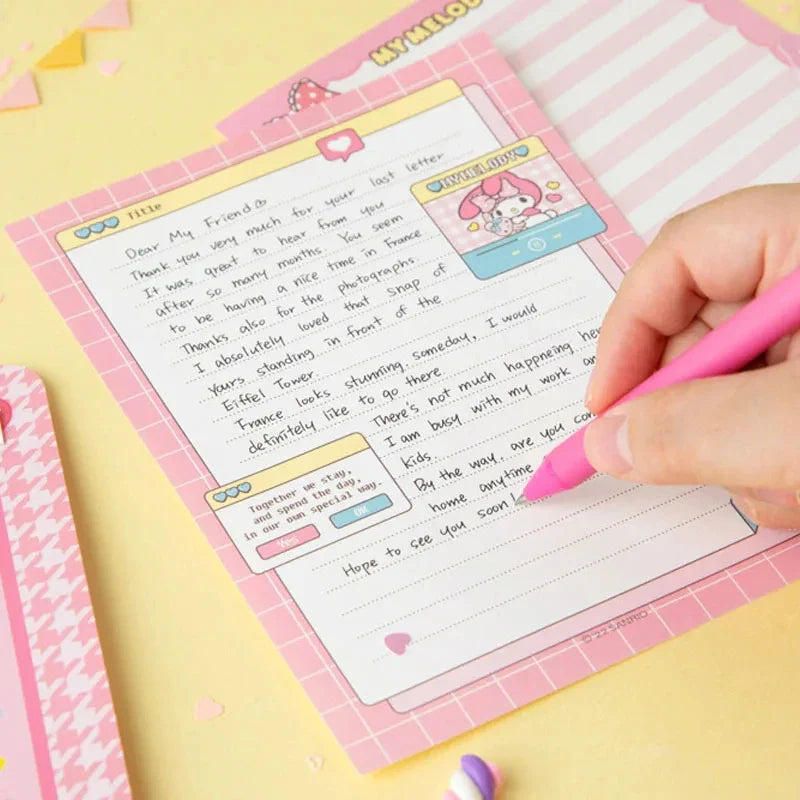 MY MELODY
Title
MY MELODY
Dear My Friend
Thank you very much for your last letter
It was great to hear from you
after so many months. You seem
to be having a nice time in France
Thanks also for the photographs.
I absolutely loved that snap of
yours standing in front of the
Eiffel Tower.
France looks stunning, someday, I would
definitely like to go there
There's not much happneing her
I am busy with my work an
kids.
By the way, are you com
home anytime
Hope to see you soon!
Together we stay,
and spend the day,
in our own special way.
Yes
OK
© '22 SANRIO